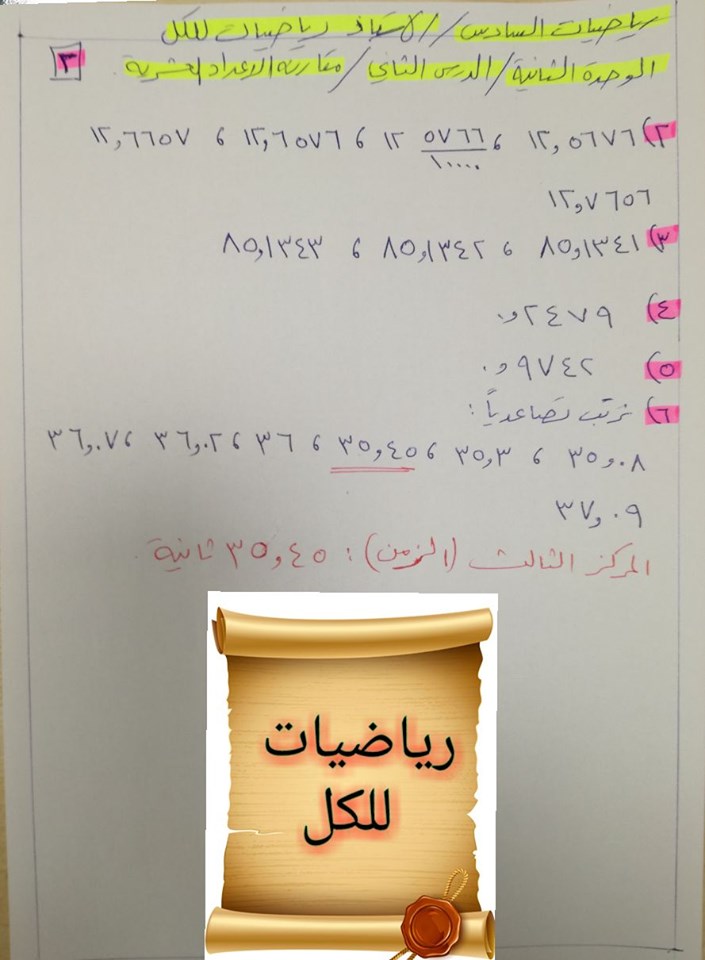 رياضيات السادس / الاستاذ رياضيات للكل
الوحدة الثانية / الدرس الثاني / مقارنة الاعداد العشرية ٣
٢) ١٢,٥٦٧٦ ، ١٢ ٥٧٦٦/١٠٠٠٠ ، ١٢,٦٥٧٦ ، ١٢,٦٦٥٧
١٢,٧٦٥٦
٣) ٨٥,١٣٤١ ، ٨٥,١٣٤٢ ، ٨٥,١٣٤٣
٤) ٠,٢٤٧٩
٥) ٠,٩٧٤٢
٦) نرتب تصاعدياً :
٣٥,٠٨ ، ٣٥,٣ ، ٣٥,٤٥ ، ٣٦ ، ٣٦,٠٢ ، ٣٦,٠٧
٣٧,٠٩
المركز الثالث (الزمن) : ٣٥,٤٥ ثانية .
رياضيات
للكل